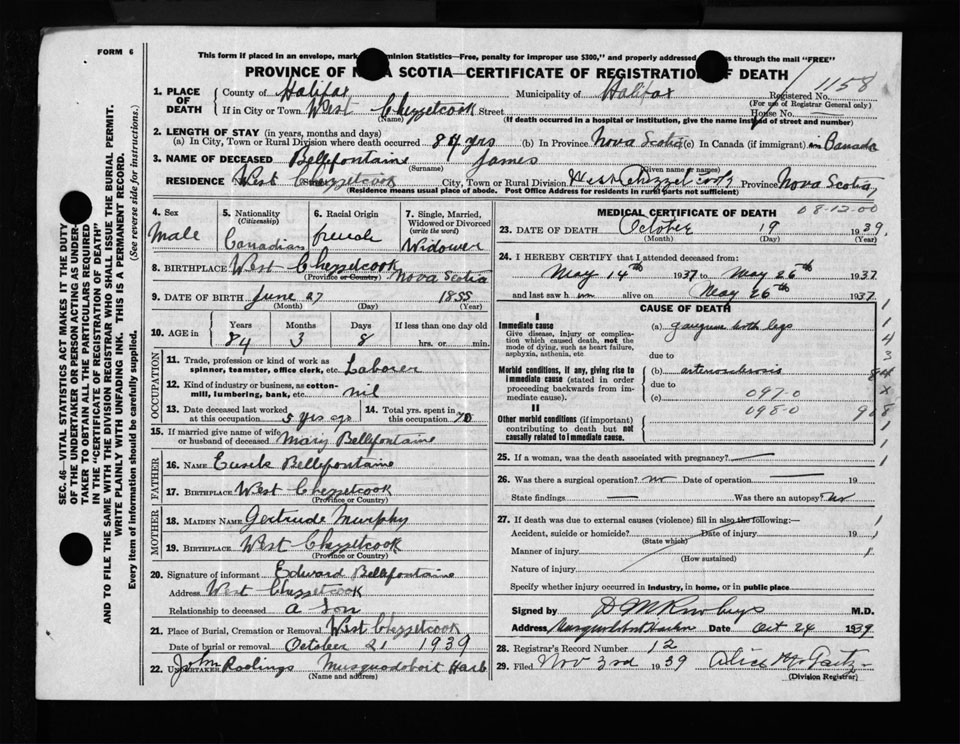 FORM 6
This form if placed in an envelope, mark minion Statistics—Free, penalty for improper use $300," and properly addressed s through the mail "FREE"
PROVINCE OF A SCOTIA—CERTIFICATE OF REGISTRATION F DEATH
1158
1. PLACE OF DEATH County of Halifax Municipality of Halifax Registered No.
(For use of Registrar General only)
If in City or Town West Chezzetcook Street House No. —
(Name) (If death occurred in a hospital or institution, give the name instead of street and number)
2. LENGTH OF STAY (in years, months and days)
(a) In City, Town or Rural Division where death occurred 84 yrs (b) In Province Nova Scotia (c) In Canada (if immigrant) Canada
3. NAME OF DECEASED Bellefontaine James
(Surname) (Given name or names)
RESIDENCE West Chezzetcook City, Town or Rural Division West Chezzetcook Province Nova Scotia
(Residence means usual place of abode. Post Office Address for residents in rural parts not sufficient)
4. Sex Male
5. Nationality (Citizenship) Canadian
6. Racial Origin french
7. Single, Married, Widowed or Divorced (write the word) Widower
8. BIRTHPLACE West Chezzetcook Nova Scotia
(Province or Country)
9. DATE OF BIRTH June 27 1855
(Month) (Day) (Year)
10. AGE in Years Months Days If less than one day old
84 3 8 hrs. or min.
OCCUPATION
11. Trade, profession or kind of work as spinner, teamster, office clerk, etc. Laborer
12. Kind of industry or business, as cotton-mill, lumbering, bank, etc. nil
13. Date deceased last worked at this occupation 5 yrs ago
14. Total yrs. spent in this occupation 70
15. If married give name of wife or husband of deceased Mary Bellefontaine
FATHER
16. NAME Euseb Bellefontaine
17. BIRTHPLACE West Chezzetcook
(Province or Country)
MOTHER
18. MAIDEN NAME Gertrude Murphy
19. BIRTHPLACE West Chezzetcook
(Province or Country)
20. Signature of informant Edward Bellefontaine
Address West Chezzetcook
Relationship to deceased a Son
21. Place of Burial, Cremation or Removal West Chezzetcook
Date of burial or removal October 21 1939
22. UNDERTAKER John Roolings Musquodoboit Harb
(Name and address)
MEDICAL CERTIFICATE OF DEATH 08-12-00
23. DATE OF DEATH October 19 1939.
(Month) (Day) (Year)
24. I HEREBY CERTIFY that I attended deceased from:
May 14th 1937 to May 26th 1937
and last saw h im alive on May 26th 1937
CAUSE OF DEATH
I
Immediate cause (a) gangrene both legs
Give disease, injury or complication which caused death, not the mode of dying, such as heart failure, asphyxia, asthenia, etc
due to
Morbid conditions, if any, giving rise to immediate cause (stated in order proceeding backwards from immediate cause).
(b) arteriosclerosis
due to
(c) 097-0
098-0 908
II
Other morbid conditions (if important) contributing to death but not causally related to immediate cause.
25. If a woman, was the death associated with pregnancy? —
26. Was there a surgical operation? no Date of operation — 19
State findings — Was there an autopsy? no
27. If death was due to external causes (violence) fill in also the following:—
Accident, suicide or homicide? Date of injury 19
(State which)
Manner of injury
(How sustained)
Nature of injury
Specify whether injury occurred in industry, in home, or in public place
Signed by M.D.
Address Date Oct 24 1939
28. Registrar's Record Number 12
29. Filed Nov 3rd 1939
(Division Registrar)
SEC. 46—VITAL STATISTICS ACT MAKES IT THE DUTY
OF THE UNDERTAKER OR PERSON ACTING AS UNDER-
TAKER TO OBTAIN ALL THE PARTICULARS REQUIRED
IN THE "CERTIFICATE OF REGISTRATION OF DEATH"
AND TO FILE THE SAME WITH THE DIVISION REGISTRAR WHO SHALL ISSUE THE BURIAL PERMIT.
WRITE PLAINLY WITH UNFADING INK. THIS IS A PERMANENT RECORD.
Every item of information should be carefully supplied. (See reverse side for instructions.)